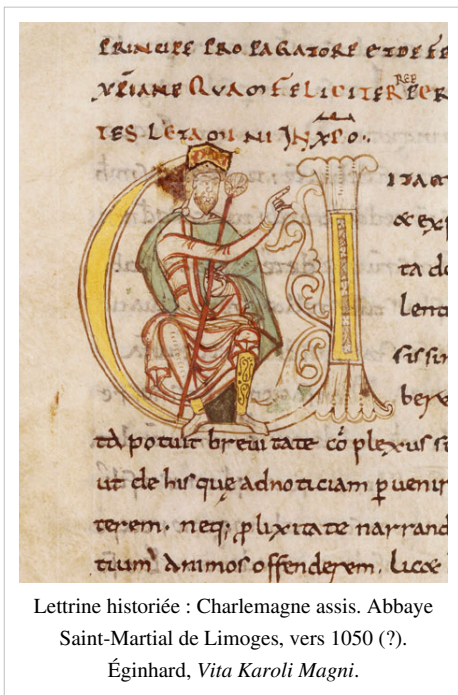 PRINCIPE PROPAGATORE ET DEFE
XPIANE QUAM FELICITER PER
TES LETAMINI IN XPO.
ITAM
& exp
ta do
lenti
sissim
bere
tā potuit breuitate cōplexus s
ut de his que ad noticiam puenir
terem. neq; plixitate narrand
tium animos offenderem. Licæ
Lettrine historiée : Charlemagne assis. Abbaye
Saint-Martial de Limoges, vers 1050 (?).
Éginhard, Vita Karoli Magni.